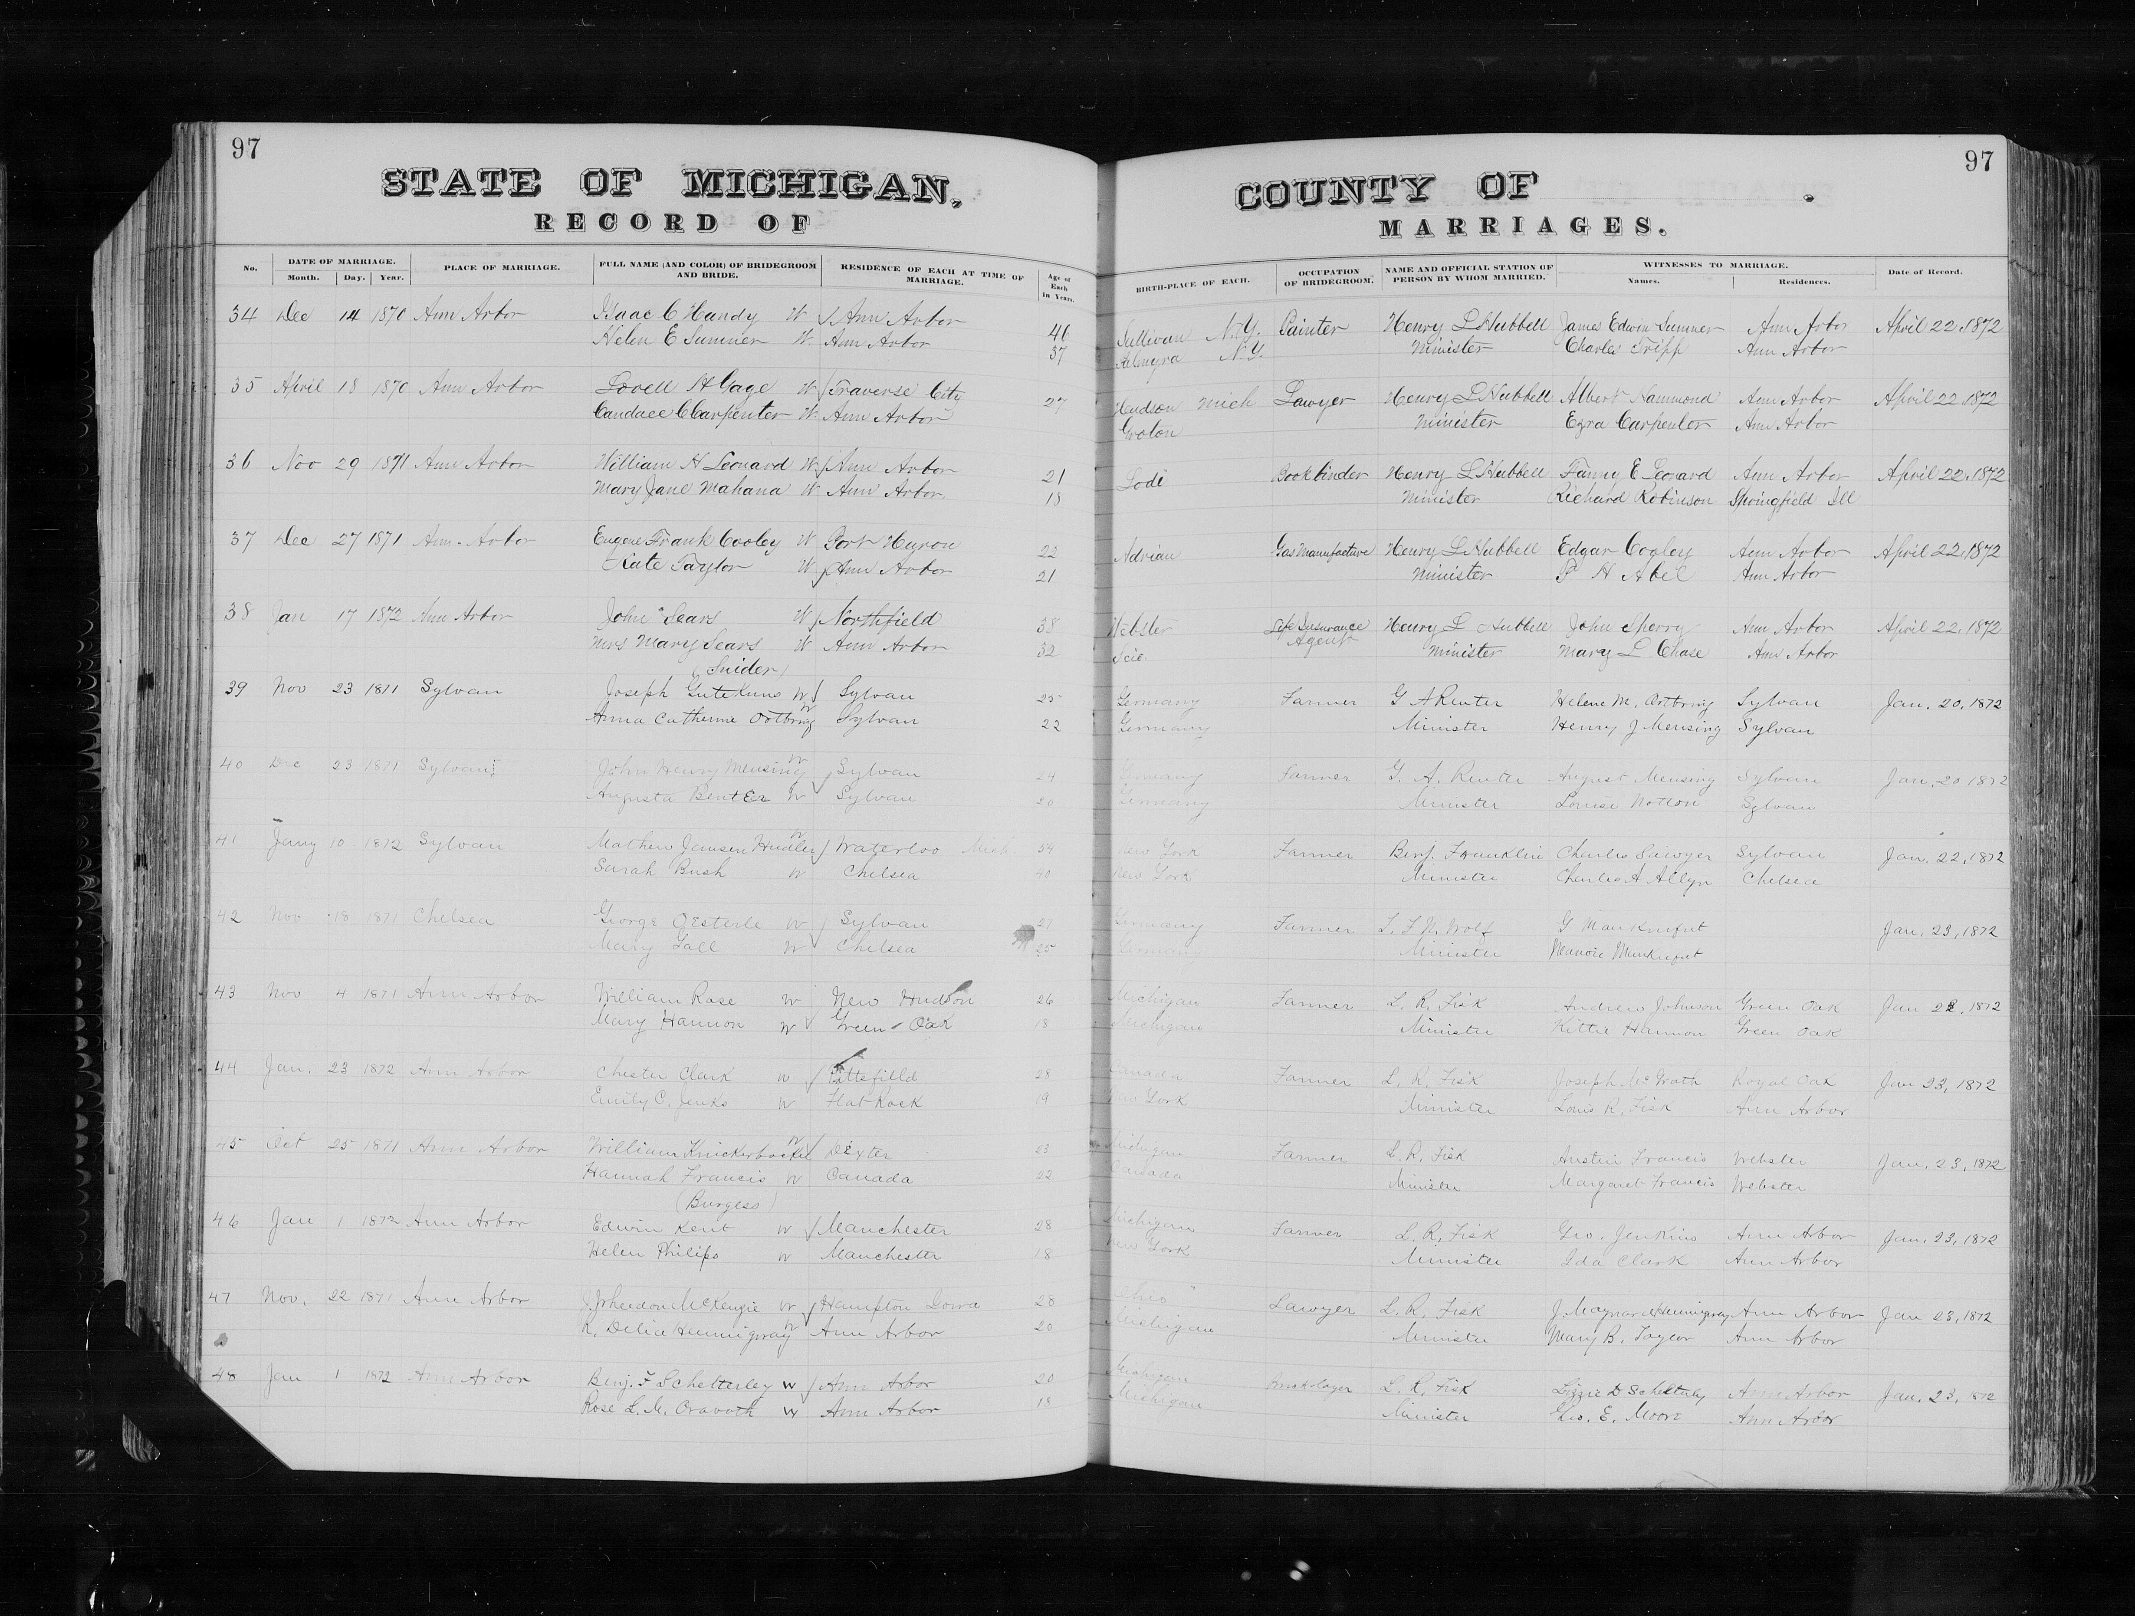 97
STATE OF MICHIGAN,
RECORD OF
97
COUNTY OF .
MARRIAGES.
No. DATE OF MARRIAGE. Month. Day. Year. PLACE OF MARRIAGE. FULL NAME (AND COLOR) OF BRIDEGROOM AND BRIDE. RESIDENCE OF EACH AT TIME OF MARRIAGE. Age of Each in Years. BIRTH-PLACE OF EACH. OCCUPATION OF BRIDEGROOM. NAME AND OFFICIAL STATION OF PERSON BY WHOM MARRIED. WITNESSES TO MARRIAGE. Names. Residences. Date of Record.
34 Dec 14 1870 Ann Arbor Isaac C Handy W Ann Arbor 46 Sullivan N.Y. Painter Henry L Hubbell James Edwin Sumner Ann Arbor April 22, 1872
Helen E Sumner W Ann Arbor 37 Palmyra N.Y. Minister Charles Tripp Ann Arbor
35 April 18 1870 Ann Arbor Lovell H Gage W Traverse City 27 Hudson Mich Lawyer Henry L Hubbell Albert Hammond Ann Arbor April 22, 1872
Candace C Carpenter W Ann Arbor Groton Minister Ezra Carpenter Ann Arbor
36 Nov 29 1871 Ann Arbor William H Leonard W Ann Arbor 21 Lodi Book binder Henry L Hubbell Fanny E Leonard Ann Arbor April 22, 1872
Mary Jane Mahana W Ann Arbor 18 Minister Richard Robinson Springfield Ill
37 Dec 27 1871 Ann Arbor Eugene Frank Cooley W Port Huron 22 Adrian Gas Manufacture Henry L Hubbell Edgar Cooley Ann Arbor April 22, 1872
Kate Taylor W Ann Arbor 21 Minister S H Abel Ann Arbor
38 Jan 17 1872 Ann Arbor John Sears W Northfield 38 Webster Life Insurance Agent Henry L Hubbell John Sperry Ann Arbor April 22, 1872
Mrs Mary Sears W Ann Arbor 32 Scio Minister Mary L Chase Ann Arbor
(Snider)
39 Nov 23 1871 Sylvan Joseph Gutekuns W Sylvan 25 Germany Farmer G A Reuter Helene M. Ortbring Sylvan Jan. 20, 1872
Anna Catherine Ortbring W Sylvan 22 Germany Minister Henry J Mensing Sylvan
40 Dec 23 1871 Sylvan John Henry Mensing W Sylvan 24 Germany Farmer G. A. Reuter August Mensing Sylvan Jan. 20 1872
Augusta Benter W Sylvan 20 Germany Minister Louise Notton Sylvan
41 10 1872 Sylvan Mathew Jansen W Waterloo Mich 54 New York Farmer Benj. Franklin Charles Sawyer Sylvan Jan. 22, 1872
Sarah Bush W Chelsea 40 New York Minister Charles A Allyn Chelsea
42 Nov 18 1871 Chelsea George Oesterle W Sylvan 27 Germany Farmer Wolf G Jan. 23, 1872
Mary Gall W Chelsea 25 Germany Minister
43 Nov 4 1871 Ann Arbor William Rose W New Hudson 26 Michigan Farmer L. R. Fisk Andrew Johnson Green Oak Jan 22, 1872
Mary Hannon W Green Oak 18 Michigan Minister Kittie Hannon Green Oak
44 Jan. 23 1872 Ann Arbor Chester Clark W Pittsfield 28 Canada Farmer L. R. Fisk Joseph McGrath Royal Oak Jan 23, 1872
Emily C. Jenks W Flat Rock 19 New York Minister Louis R. Fisk Ann Arbor
45 Oct 25 1871 Ann Arbor William Knickerbocker W Dexter 23 Michigan Farmer L. R. Fisk Austin Francis Webster Jan. 23, 1872
Hannah Francis W Canada 22 Canada Minister Margaret Francis Webster
(Burgess)
46 Jan 1 1872 Ann Arbor Edwin Kent W Manchester 28 Michigan Farmer L. R. Fisk Geo. Jenkins Ann Arbor Jan. 23, 1872
Helen Philips W Manchester 18 New York Minister Ida Clark Ann Arbor
47 Nov. 22 1871 Ann Arbor McKenzie W Hampton Iowa 28 Ohio Lawyer L. R. Fisk J. Maynard Hemingway Ann Arbor Jan 23, 1872
R. Delia Hemmigway W Ann Arbor 20 Michigan Minister Mary B. Taylor Ann Arbor
48 Jan 1 1872 Ann Arbor Benj. F Schetterley W Ann Arbor 20 Michigan L. R. Fisk Lizzie D Schetterly Ann Arbor Jan. 23, 1872
Rose L. M. Cravath W Ann Arbor 18 Michigan Minister Geo. E. Moore Ann Arbor